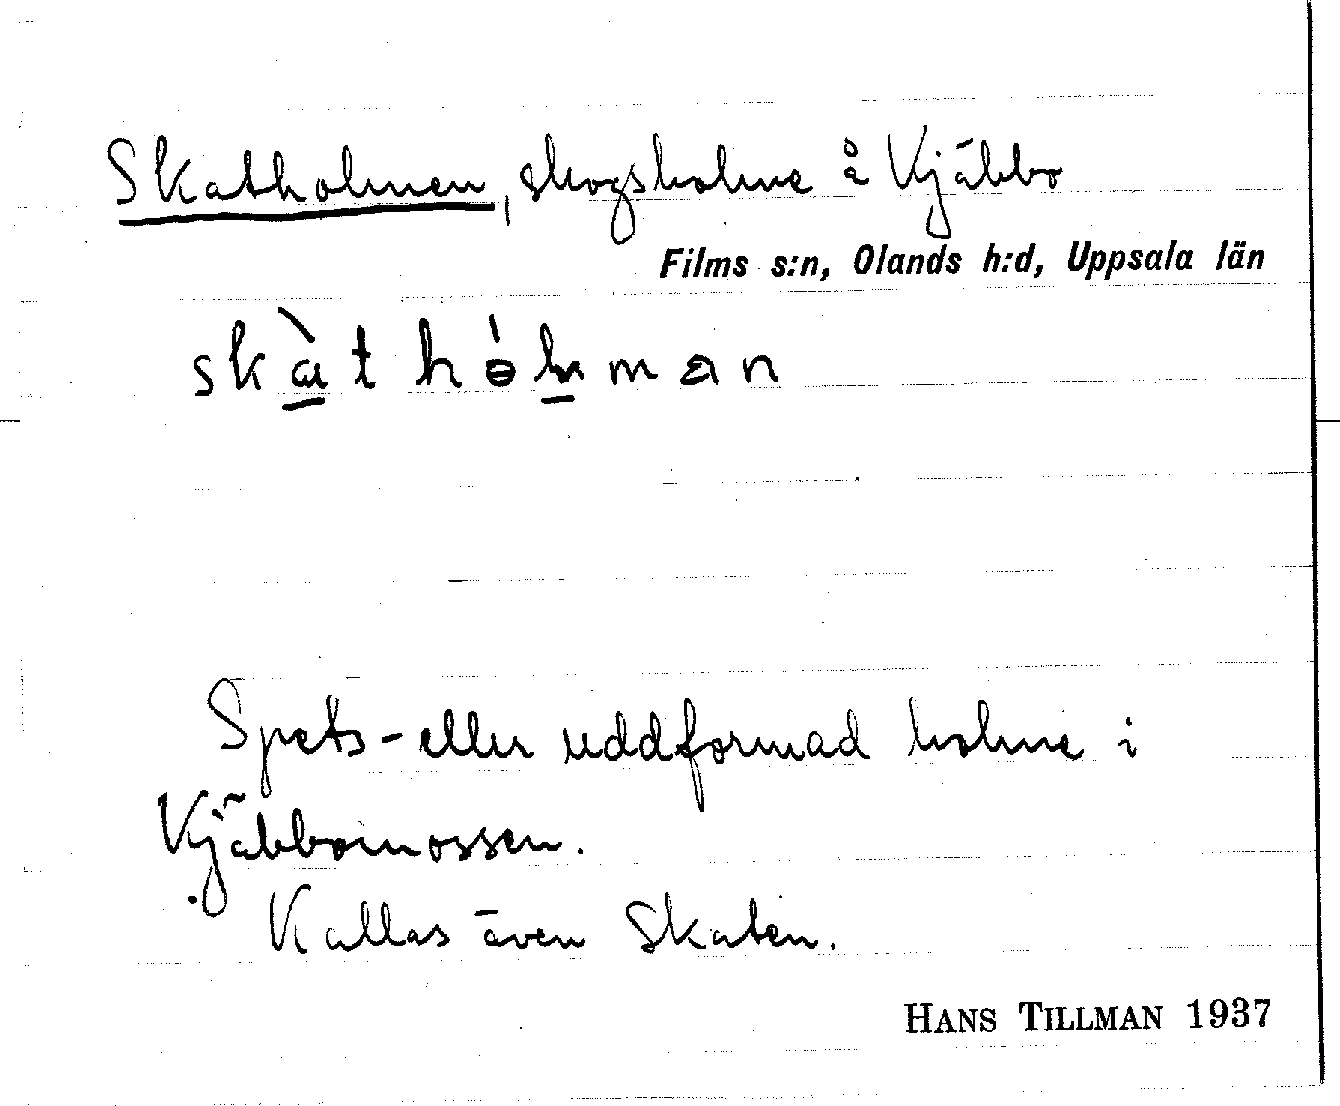 Skatholmen, skogsholme å Kjäbbo
Films s:n, Olands h:d, Uppsala län
skàthólman
Spets- eller uddformad holme i
Kjäbbomossen.
Kallas även Skaten.
HANS TILLMAN 1937